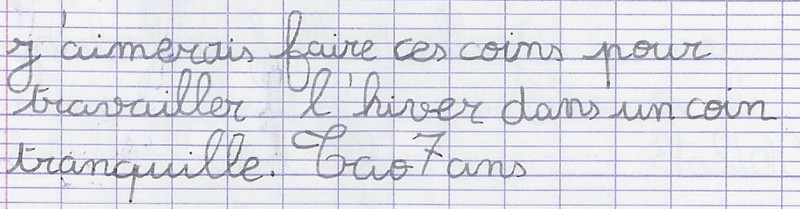 j'aimerais faire ces coins pour
travailler l'hiver dans un coin
tranquille. Tao 7 ans